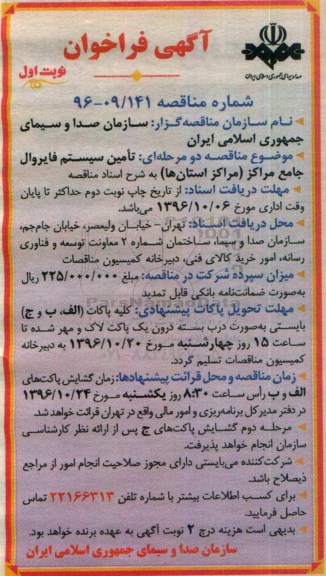 آگهی فراخوان
صدا و سیمای جمهوری اسلامی ایران
نوبت اول
شماره مناقصه ۰۹/۱۴۱-۹۶
نـام سـازمان مناقصه‌گـزار: سـازمان صدا و سـیمای
جمهوری اسلامی ایران
موضوع مناقصـه دو مرحله‌ای: تأمین سیسـتم فایروال
جامع مراکز (مراکز استان‌ها) به شرح اسناد مناقصه
مهلت دریافت اسناد: از تاریخ چاپ نوبت دوم حداکثر تا پایان
وقت اداری مورخ ۱۳۹۶/۱۰/۰۶ می‌باشد.
محل دریافت اسناد: تهران - خیابـان ولیعصر، خیابان جام‌جم،
سازمان صدا و سیما، ساختمان شـماره ۲ معاونت توسعه و فناوری
رسانه، امور خرید کالای فنی، دبیرخانه کمیسیون مناقصات
میزان سپرده شرکت در مناقصه: مبلغ ۲۲۵/۰۰۰/۰۰۰ ریال
به‌صورت ضمانت‌نامه بانکی قابل تمدید
مهلت تحویل پاکات پیشنهادی: کلیه پاکات (الف، ب و ج)
بایستی به‌صورت درب بسته درون یک پاکت لاک و مهر شده تا
ساعت ۱۵ روز چهارشنبـه مورخ ۱۳۹۶/۱۰/۲۰ به دبیرخانه
کمیسیون مناقصات تسلیم گردد.
زمان مناقصه و محل قرائت پیشنهادها: زمان گشایش پاکت‌های
الف و ب رأس ساعت ۸:۳۰ روز یکشنبـه مورخ ۱۳۹۶/۱۰/۲۴
در دفتر مدیر کل برنامه‌ریزی و امور مالی واقع در تهران قرائت خواهد شد.
مرحلـه دوم گشـایش پاکت‌های ج پس از ارائه نظر کارشناسـی
سازمان انجام خواهد پذیرفت.
شرکت‌کننده می‌بایستی دارای مجوز صلاحیت انجام امور از مراجع
ذیصلاح باشد.
برای کسـب اطلاعات بیشتر با شماره تلفن ۲۲۱۶۶۳۱۳ تماس
حاصل فرمایید.
بدیهی است هزینه درج ۲ نوبت آگهی به عهده برنده خواهد بود.
سازمان صدا و سیمای جمهوری اسلامی ایران